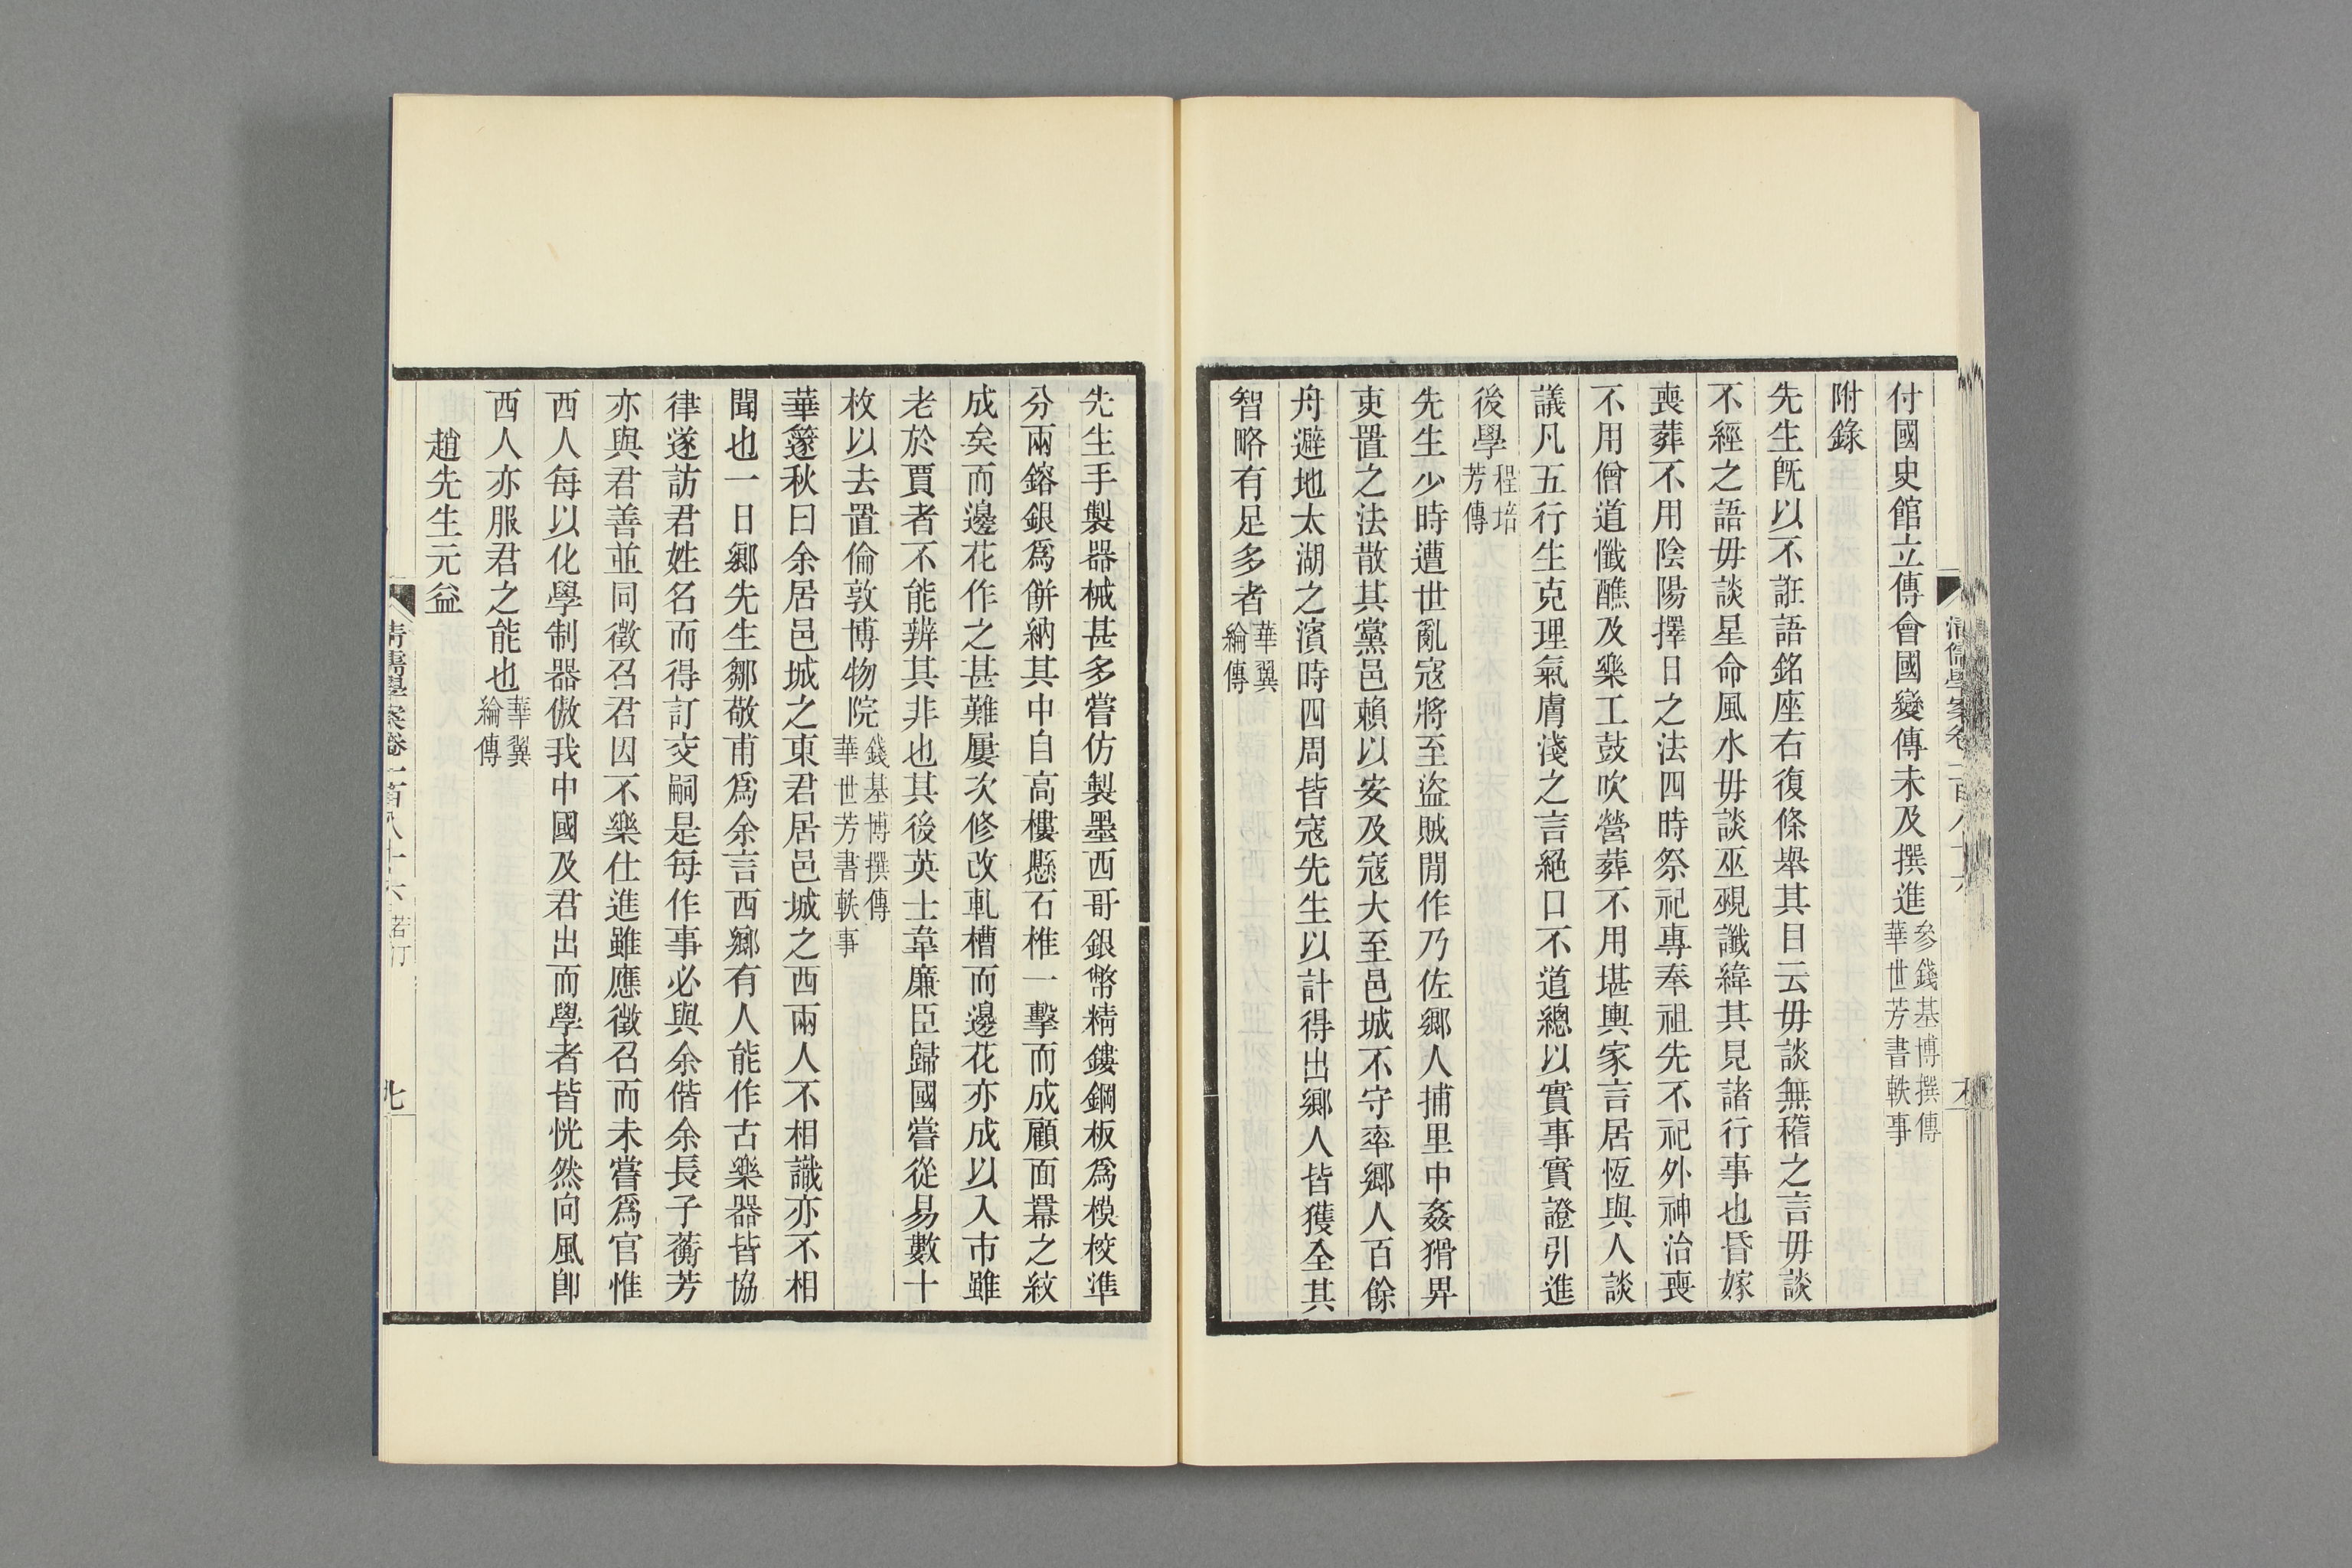 付國史館立傳會國變傳未及撰進參錢基博撰傳華世芳書軼事
附錄
先生旣以不誑語銘座右復條舉其目云毋談無稽之言毋談
不經之語毋談星命風水毋談巫覡讖緯其見諸行事也昏嫁
喪葬不用陰陽擇日之法四時祭祀專奉祖先不祀外神治喪
不用僧道懺醮及樂工鼓吹營葬不用堪輿家言居恆與人談
議凡五行生克理氣膚淺之言絕口不道總以實事實證引進
後學程培芳傳
先生少時遭世亂寇將至盜賊閒作乃佐鄉人捕里中姦猾畀
吏置之法散其黨邑賴以安及寇大至邑城不守率鄉人百餘
舟避地太湖之濱時四周皆寇先生以計得出鄉人皆獲全其
智略有足多者華翼綸傳
先生手製器械甚多嘗仿製墨西哥銀幣精鏤鋼板爲模校準
分兩鎔銀爲餠納其中自高樓懸石椎一擊而成顧面羃之紋
成矣而邊花作之甚難屢次修改軋槽而邊花亦成以入市雖
老於賈者不能辨其非也其後英士韋廉臣歸國嘗從易數十
枚以去置倫敦博物院錢基博撰傳華世芳書軼事
華篴秋曰余居邑城之東君居邑城之西兩人不相識亦不相
聞也一日鄉先生鄒敬甫爲余言西鄉有人能作古樂器皆協
律遂訪君姓名而得訂交嗣是每作事必與余偕余長子蘅芳
亦與君善並同徵召君因不樂仕進雖應徵召而未嘗爲官惟
西人每以化學制器傲我中國及君出而學者皆恍然向風卽
西人亦服君之能也華翼綸傳
趙先生元益
清儒學案卷一百八十六 若汀
九